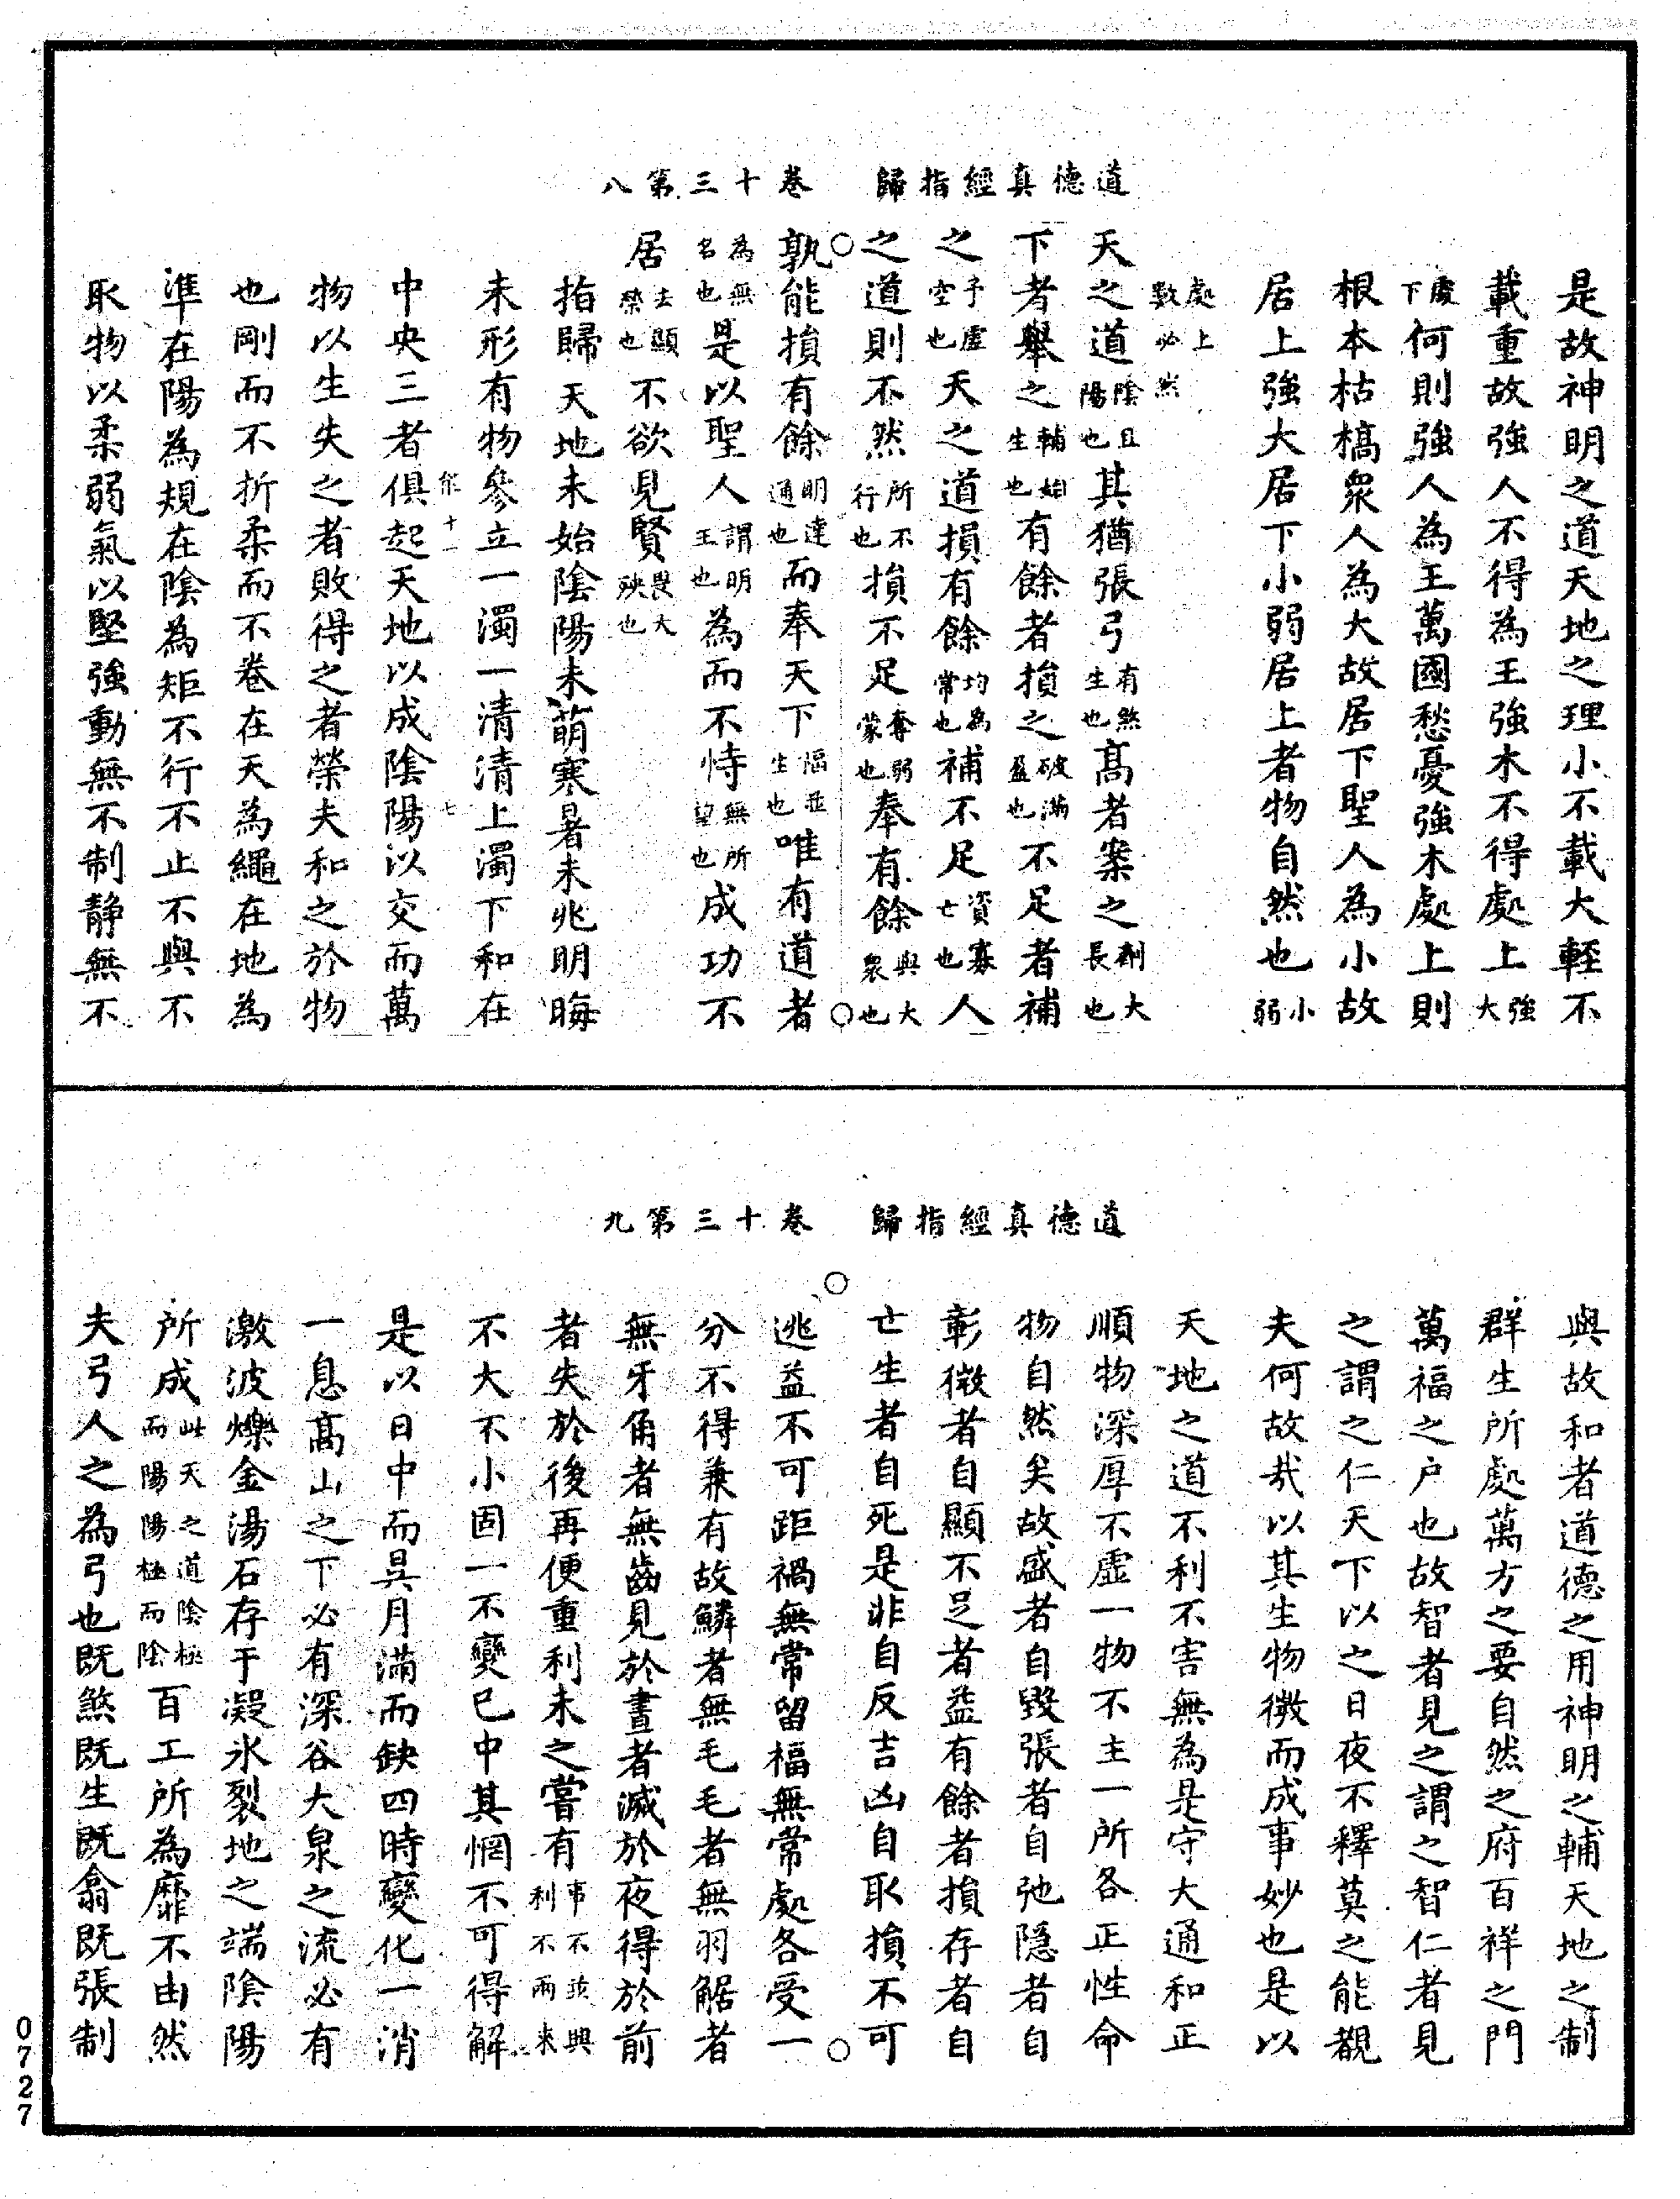 道德真經指歸　卷十三第八
是故神明之道天地之理小不載大輕不
載重故強人不得為王強木不得處上強大
處下何則強人為王萬國愁憂強木處上則
根本枯槁衆人為大故居下聖人為小故
居上強大居下小弱居上者物自然也小弱
處上數必然
天之道陰且陽也其猶張弓有煞生也高者案之制大長也
下者舉之輔始生也有餘者損之破滿盈也不足者補
之予虛空也天之道損有餘均為常也補不足資寡亡也人
之道則不然所不行也損不足奪弱蒙也奉有餘與大衆也
孰能損有餘明達通也而奉天下愊並生也唯有道者
為無名也是以聖人謂明王也為而不恃無所望也成功不
居去顯榮也不欲見賢畏大殃也
指歸天地未始陰陽未萌寒暑未兆明晦
未形有物參立一濁一清清上濁下和在
中央三者俱起天地以成陰陽以交而萬
能十一　七
物以生失之者敗得之者榮夫和之於物
也剛而不折柔而不卷在天為繩在地為
準在陽為規在陰為矩不行不止不與不
取物以柔弱氣以堅強動無不制靜無不
道德真經指歸　卷十三第九
與故和者道德之用神明之輔天地之制
群生所處萬方之要自然之府百祥之門
萬福之戶也故智者見之謂之智仁者見
之謂之仁天下以之日夜不釋莫之能覩
夫何故哉以其生物微而成事妙也是以
天地之道不利不害無為是守大通和正
順物深厚不虛一物不主一所各正性命
物自然矣故盛者自毀張者自弛隱者自
彰微者自顯不足者益有餘者損存者自
亡生者自死是非自反吉凶自取損不可
逃益不可距禍無常留福無常處各受一
分不得兼有故鱗者無毛毛者無羽觡者
無牙角者無齒見於晝者滅於夜得於前
者失於後再便重利未之嘗有事不並興利不兩來
不大不小固一不變已中其惘不可得解
是以日中而昃月滿而缺四時變化一消
一息高山之下必有深谷大泉之流必有
激波爍金湯石存于凝氷裂地之端陰陽
所成此天之道陰極而陽陽極而陰百工所為靡不由然
夫弓人之為弓也既煞既生既翕既張制
0727